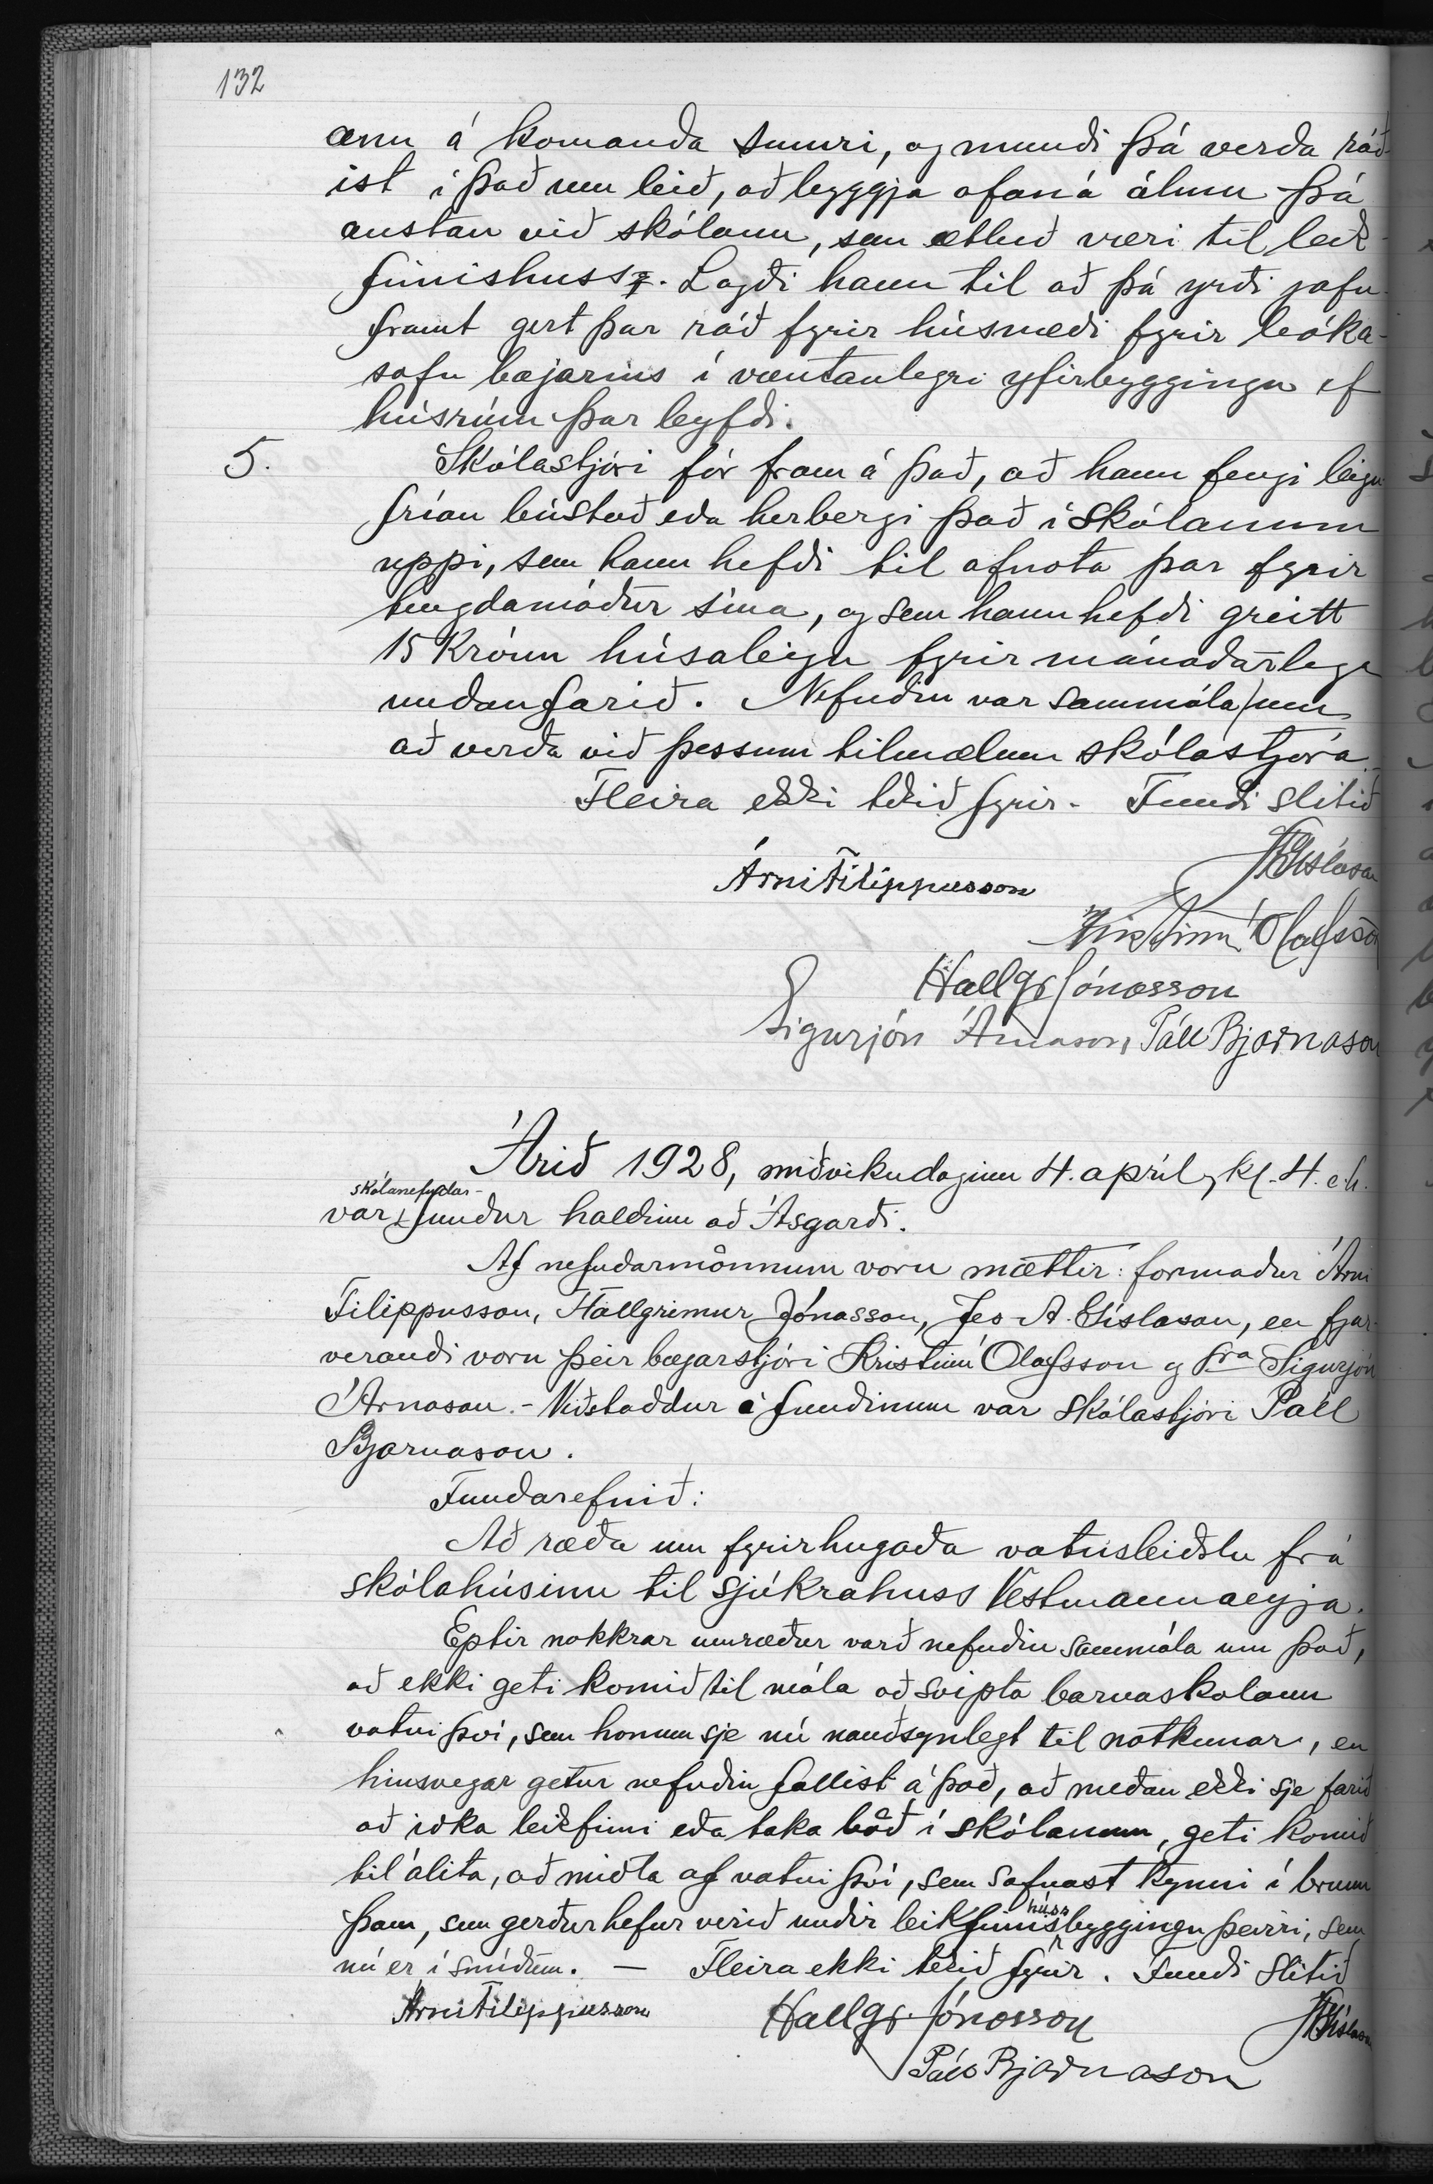 132
ænu á komanda sumri, og mundi þá verða ráð-
ist í það um leið, að byggja ofaná álmu þá
austan við skólann, sem ætluð væri til leik-
fimishuss. Lagði hann til að þá yrði jafn-
framt gert þar ráð fyrir húsnæði fyrir bóka-
safn bæjarins í væntanlegri yfirbyggingu ef
húsrúm þar leyfði.
5. Skólastjóri fór fram á það, að hann fengi leigu
frían bústað eða herbergi það í skólanum
uppi, sem hann hefði til afnota þar fyrir
tengdamóður sína, og sem hann hefði greitt
15 Krónu húsaleigu fyrir mánaðarlega
undanfarið. Nefndin var sammála um
að verða við þessum tilmælum skólastjóra.
Fleira ekki tekið fyrir. Fundi slitið
Árni Filippusson JAGíslason
Kristinn Ólafsson
Hallgr Jónasson
Sigurjón Árnason, Páll Bjarnason
Árið 1928, miðvikudaginn 4. apríl, kl. 4. e.h.
skólanefndar-
var fundur haldinn að Ásgarði.
Af nefndarmönnum voru mættir: formaður Árni
Filippusson, Hallgrimur Jónasson, Jes A. Gíslason, en fjar-
verandi voru þeir bæjarstjóri Kristinn Ólafsson og sra Sigurjón
Árnason. - Viðstaddur á fundinum var skólastjóri Páll
Bjarnason.
Fundarefnið:
Að ræða um fyrirhugaða vatnsleiðslu frá
skólahúsinu til sjúkrahuss Vestmannaeyja.
Eptir nokkrar umræður varð nefndin sammála um það,
að ekki geti komið til mála að svipta barnaskolann
vatni því, sem honum sje nú nauðsynlegt til notkunar, en
hinsvegar getur nefndin fallist á það, að meðan ekki sje farið
að iðka leikfimi eða taka böð í skólanum, geti komið
til álita, að miðla af vatni því, sem safnast kynni í brunn
húss
þann, sem gerður hefur verið undir leikfimisbyggingu þeirri, sem
nú er í smíðum. — Fleira ekki tekið fyrir. Fundi slitið
Árni Filippusson Hallgr. Jónasson JAGíslason
Páll Bjarnason